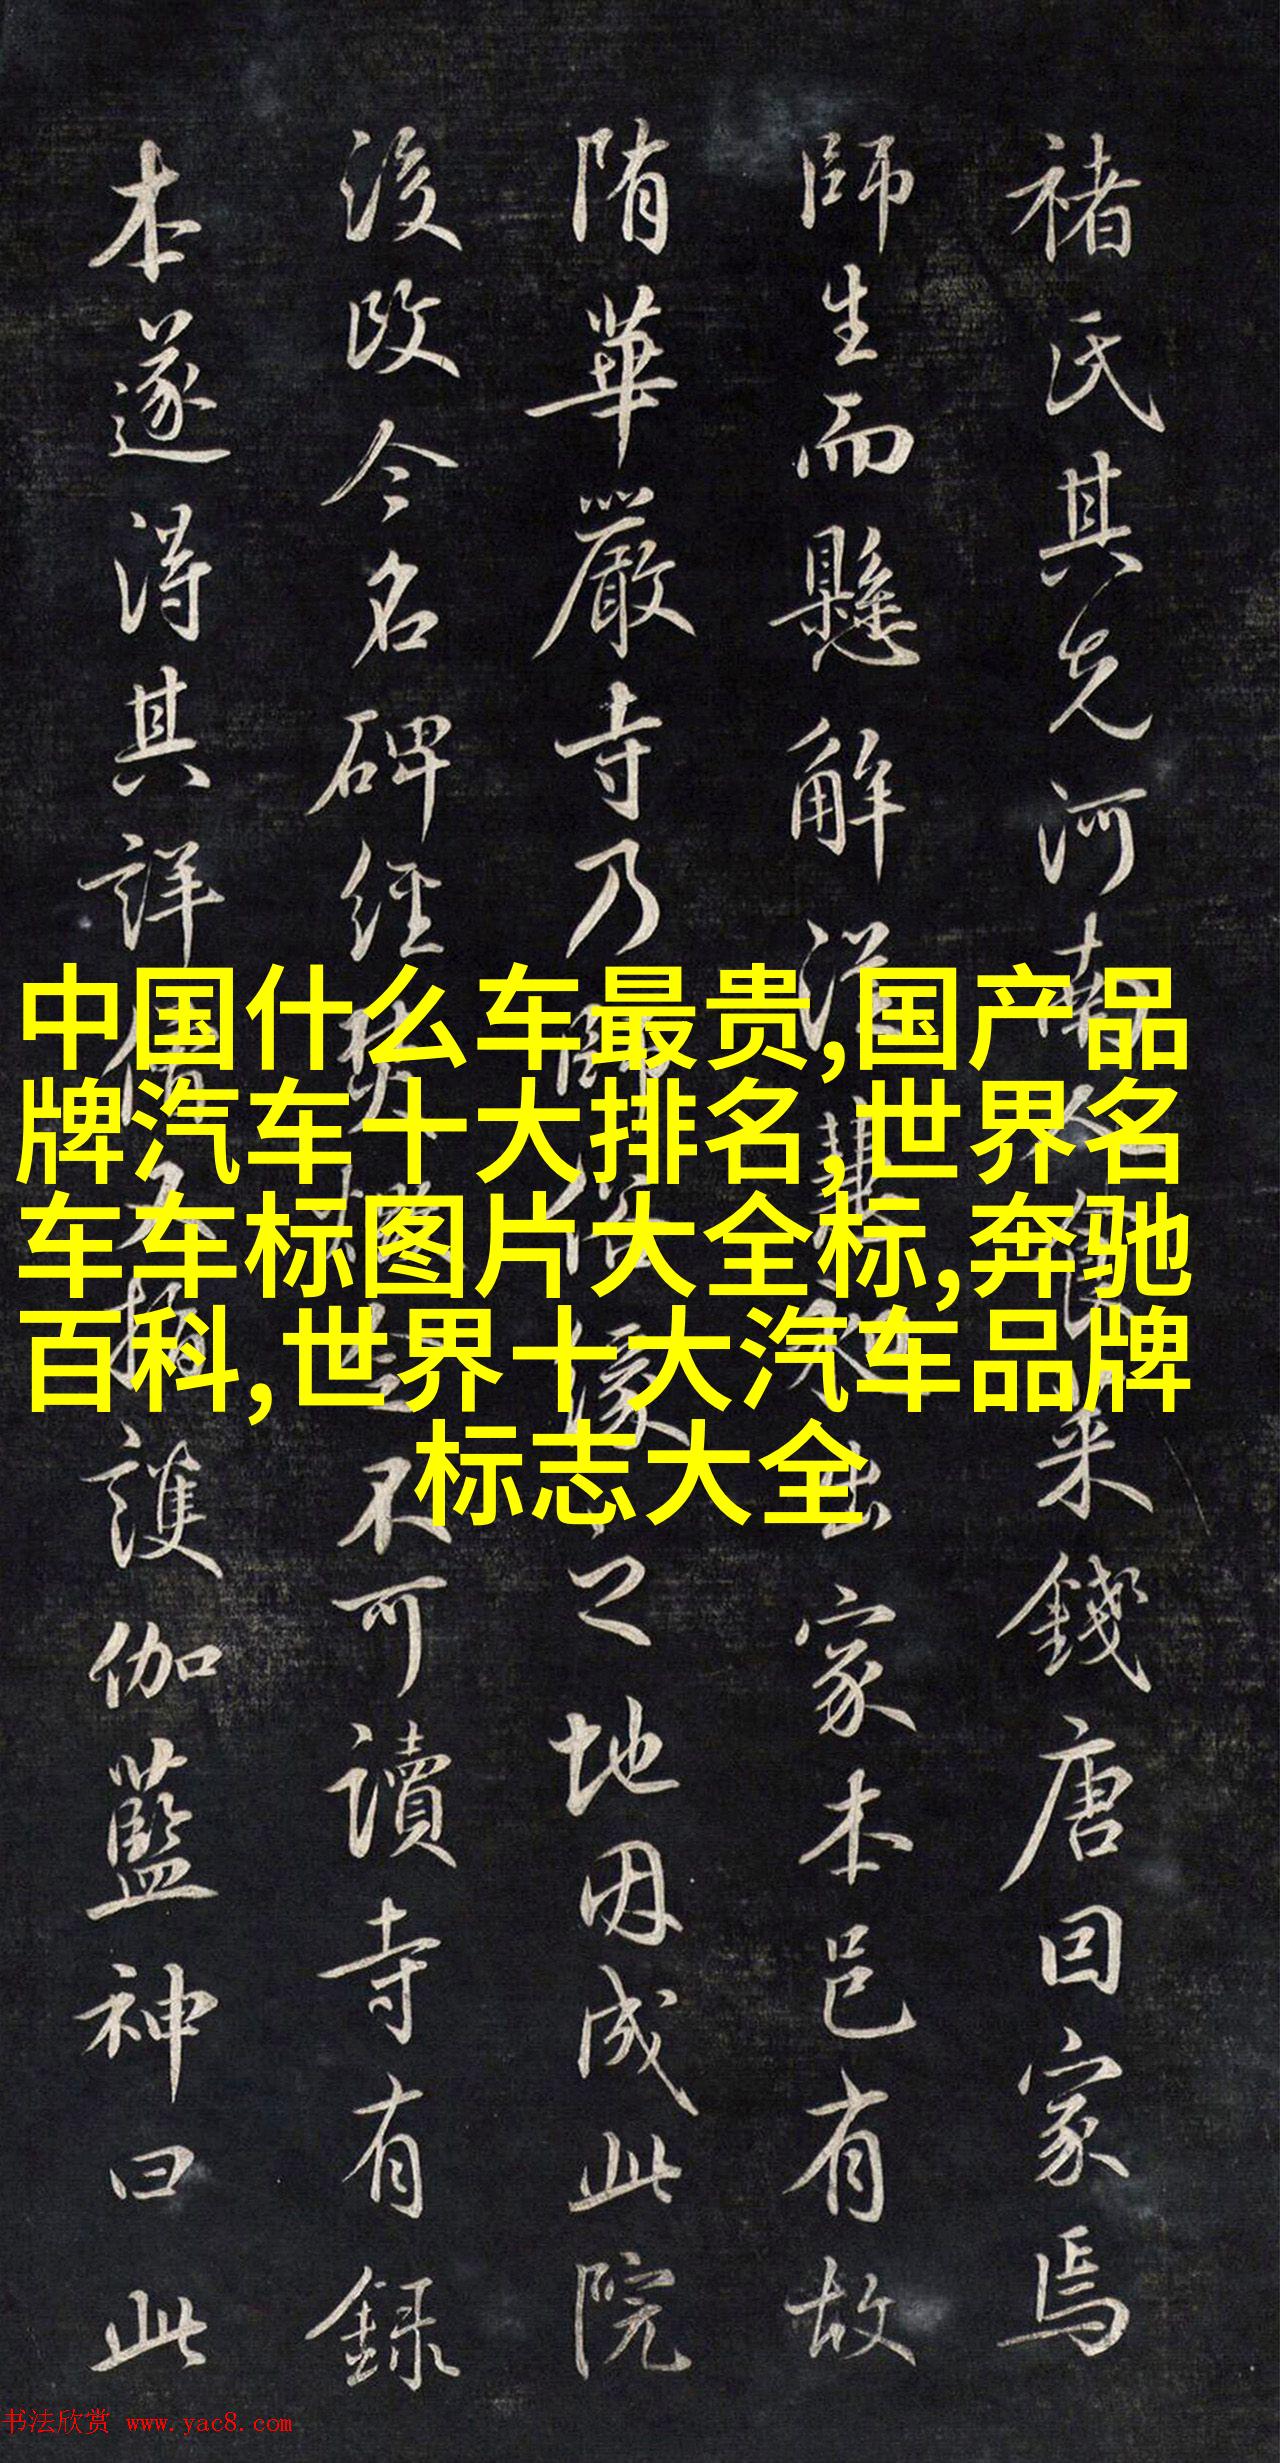 褚氏其先河南人後来錢唐因家焉
師生而懸解泣出家本邑有故
隋華嚴寺乃之地因成此院
後改今名碑經焚不可讀寺有録
本遂得其詳護伽藍神曰此
中国什么车最贵,国产品
牌汽车十大排名,世界名
车车标图片大全标,奔驰
百科,世界十大汽车品牌
标志大全
书法欣赏 www.yac8.com